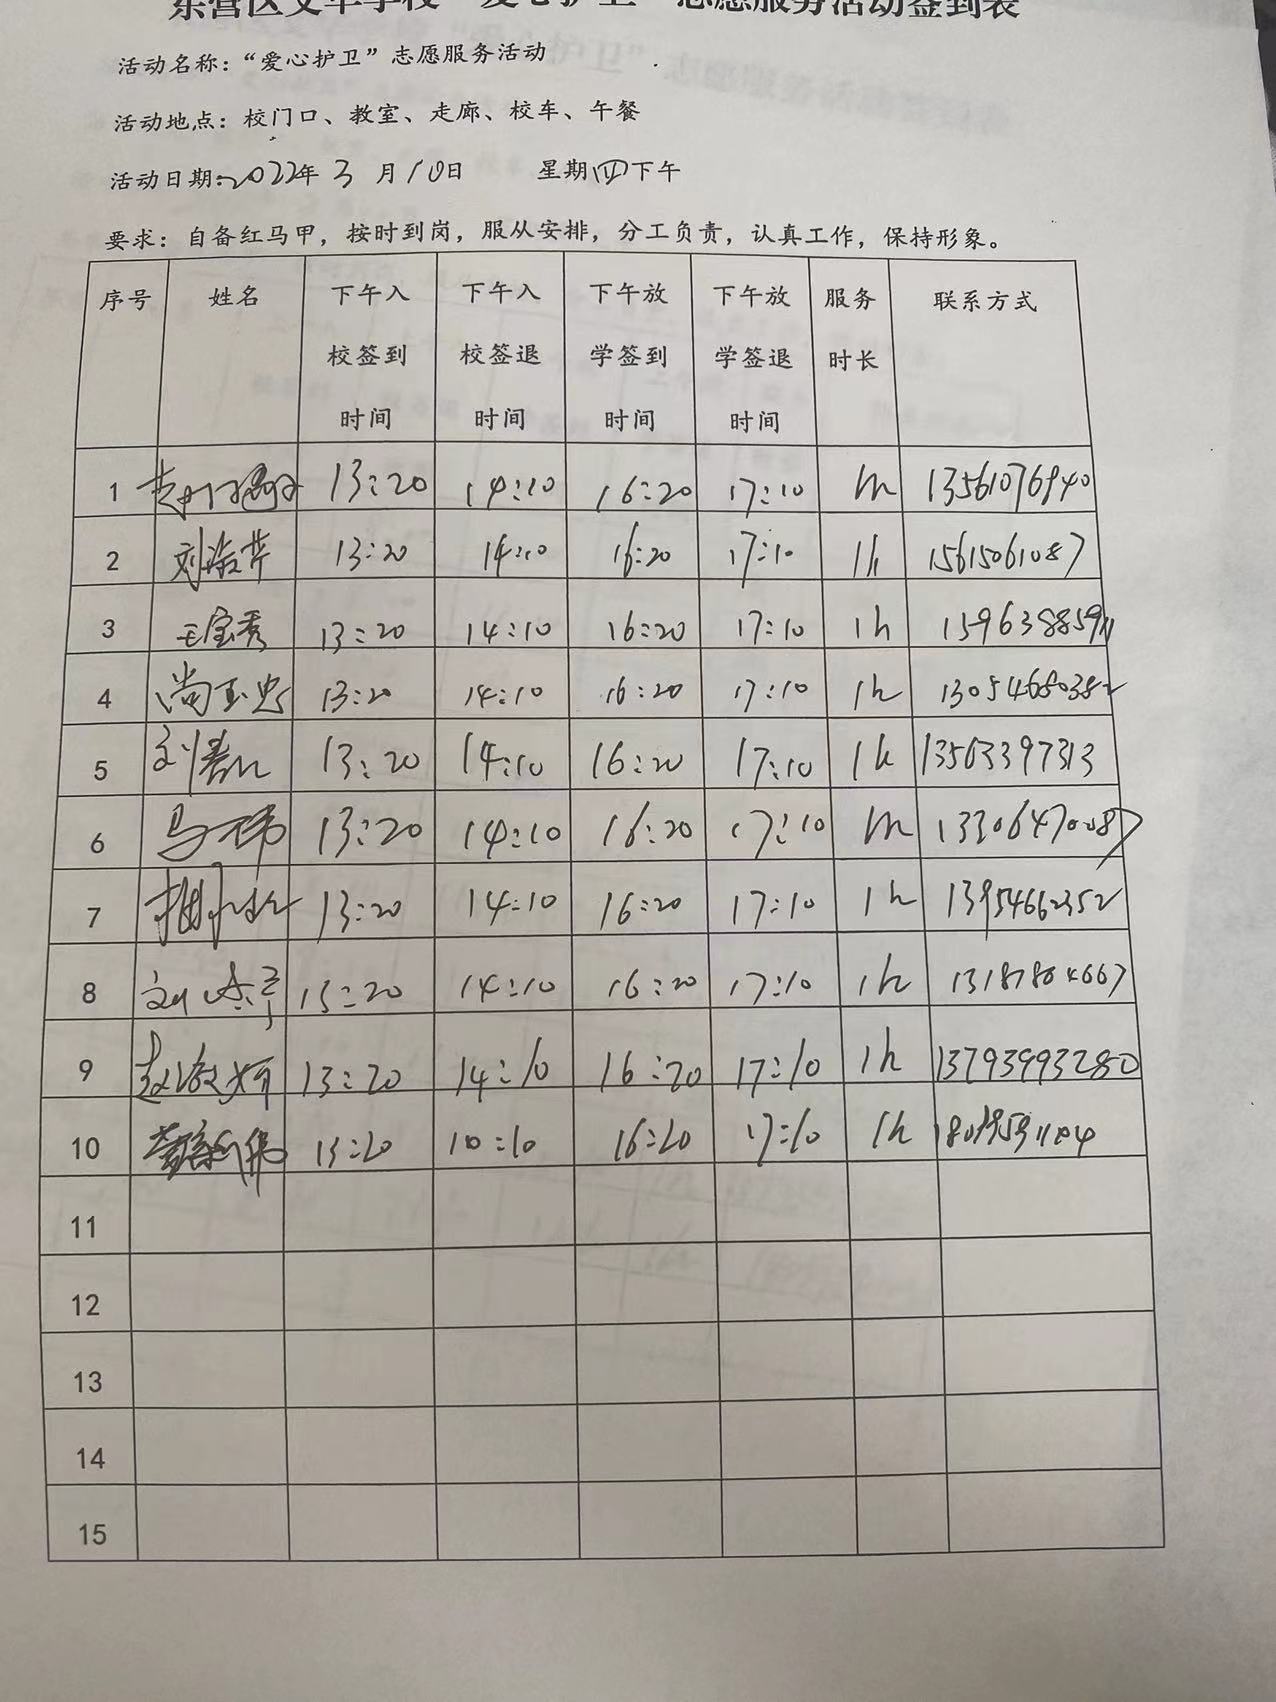 东营区文华学校“爱心护卫”志愿服务活动签到表
活动名称：“爱心护卫”志愿服务活动
活动地点：校门口、教室、走廊、校车、午餐
活动日期:2022年 3 月 10日 星期四下午
要求：自备红马甲，按时到岗，服从安排，分工负责，认真工作，保持形象。
序号 姓名 下午入校签到时间 下午入校签退时间 下午放学签到时间 下午放学签退时间 服务时长 联系方式
1 13:20 14:10 16:20 17:10 1h 13561076940
2 13:20 14:10 16:20 17:10 1h 15615061087
3 王宝秀 13:20 14:10 16:20 17:10 1h 15963885911
4 尚玉忠 13:20 14:10 16:20 17:10 1h 13054680382
5 13:20 14:10 16:20 17:10 1h 13563397313
6 13:20 14:10 16:20 17:10 1h 13306470087
7 13:20 14:10 16:20 17:10 1h 13954662352
8 13:20 14:10 16:20 17:10 1h
9 13:20 14:10 16:20 17:10 1h 13793993280
10 13:20 10:10 16:20 17:10 1h
11
12
13
14
15